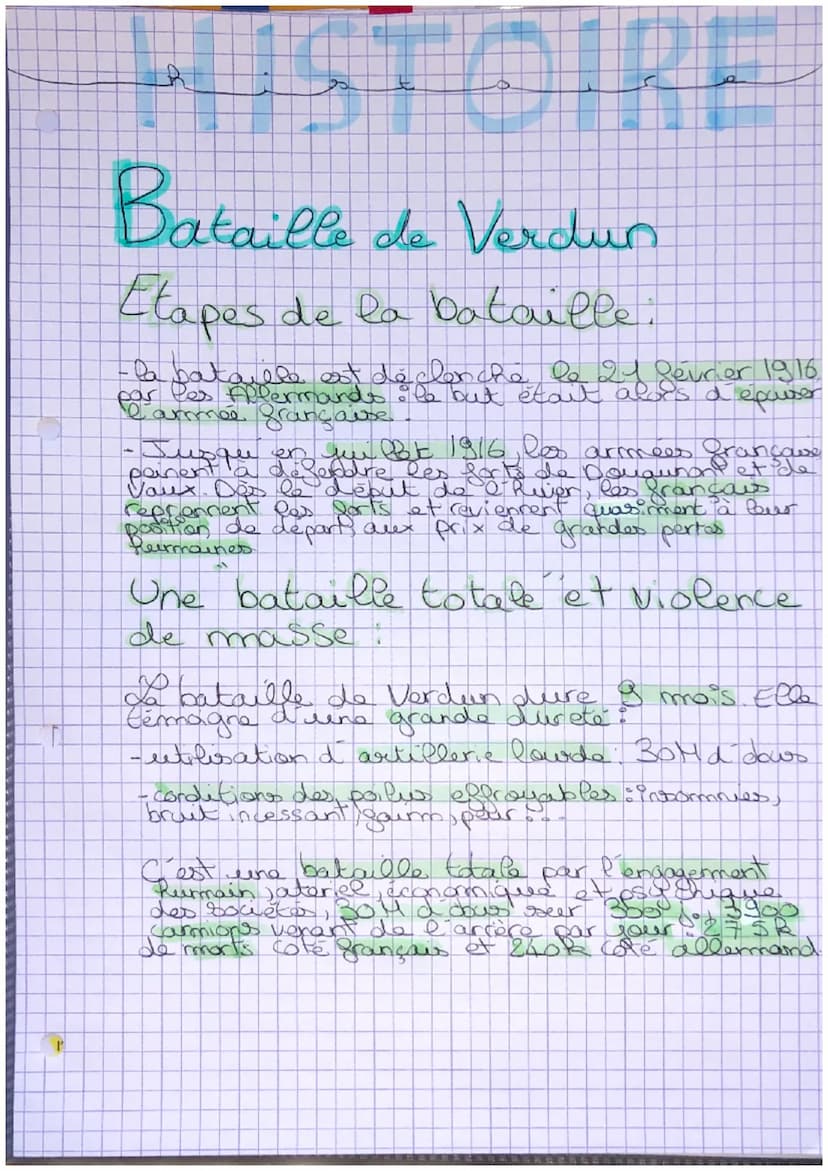 HISTOIRE
histoire
Bataille de Verdun
Etapes de la bataille :
- la bataille est déclenché le 21 février 1916
par les Allemands : le but était alors d'épuiser
l'armée française.
- Jusqu'en juillet 1916, les armées française
peinent à défendre les forts de Douaumont et de
Vaux. Dès le début de l'hiver, les français
reprennent les forts et reviennent quasiment à leur
position de départ, aux prix de grandes pertes
humaines
Une "bataille totale" et violence
de masse :
La bataille de Verdun dure 9 mois. Elle
témagne d'une grande dureté :
- utilisation d'artillerie lourde : 30M d'obus
- conditions des poilus effroyables : insomnies,
bruit incessant, faim, peur ...
C'est une bataille totale par l'engagement
humain, atériel, économique et psychique
des sociétés, 30M d'obus sur 300
3900
camions venant de l'arrière par jour : 275k
de morts côté français et 240k côté allemand.